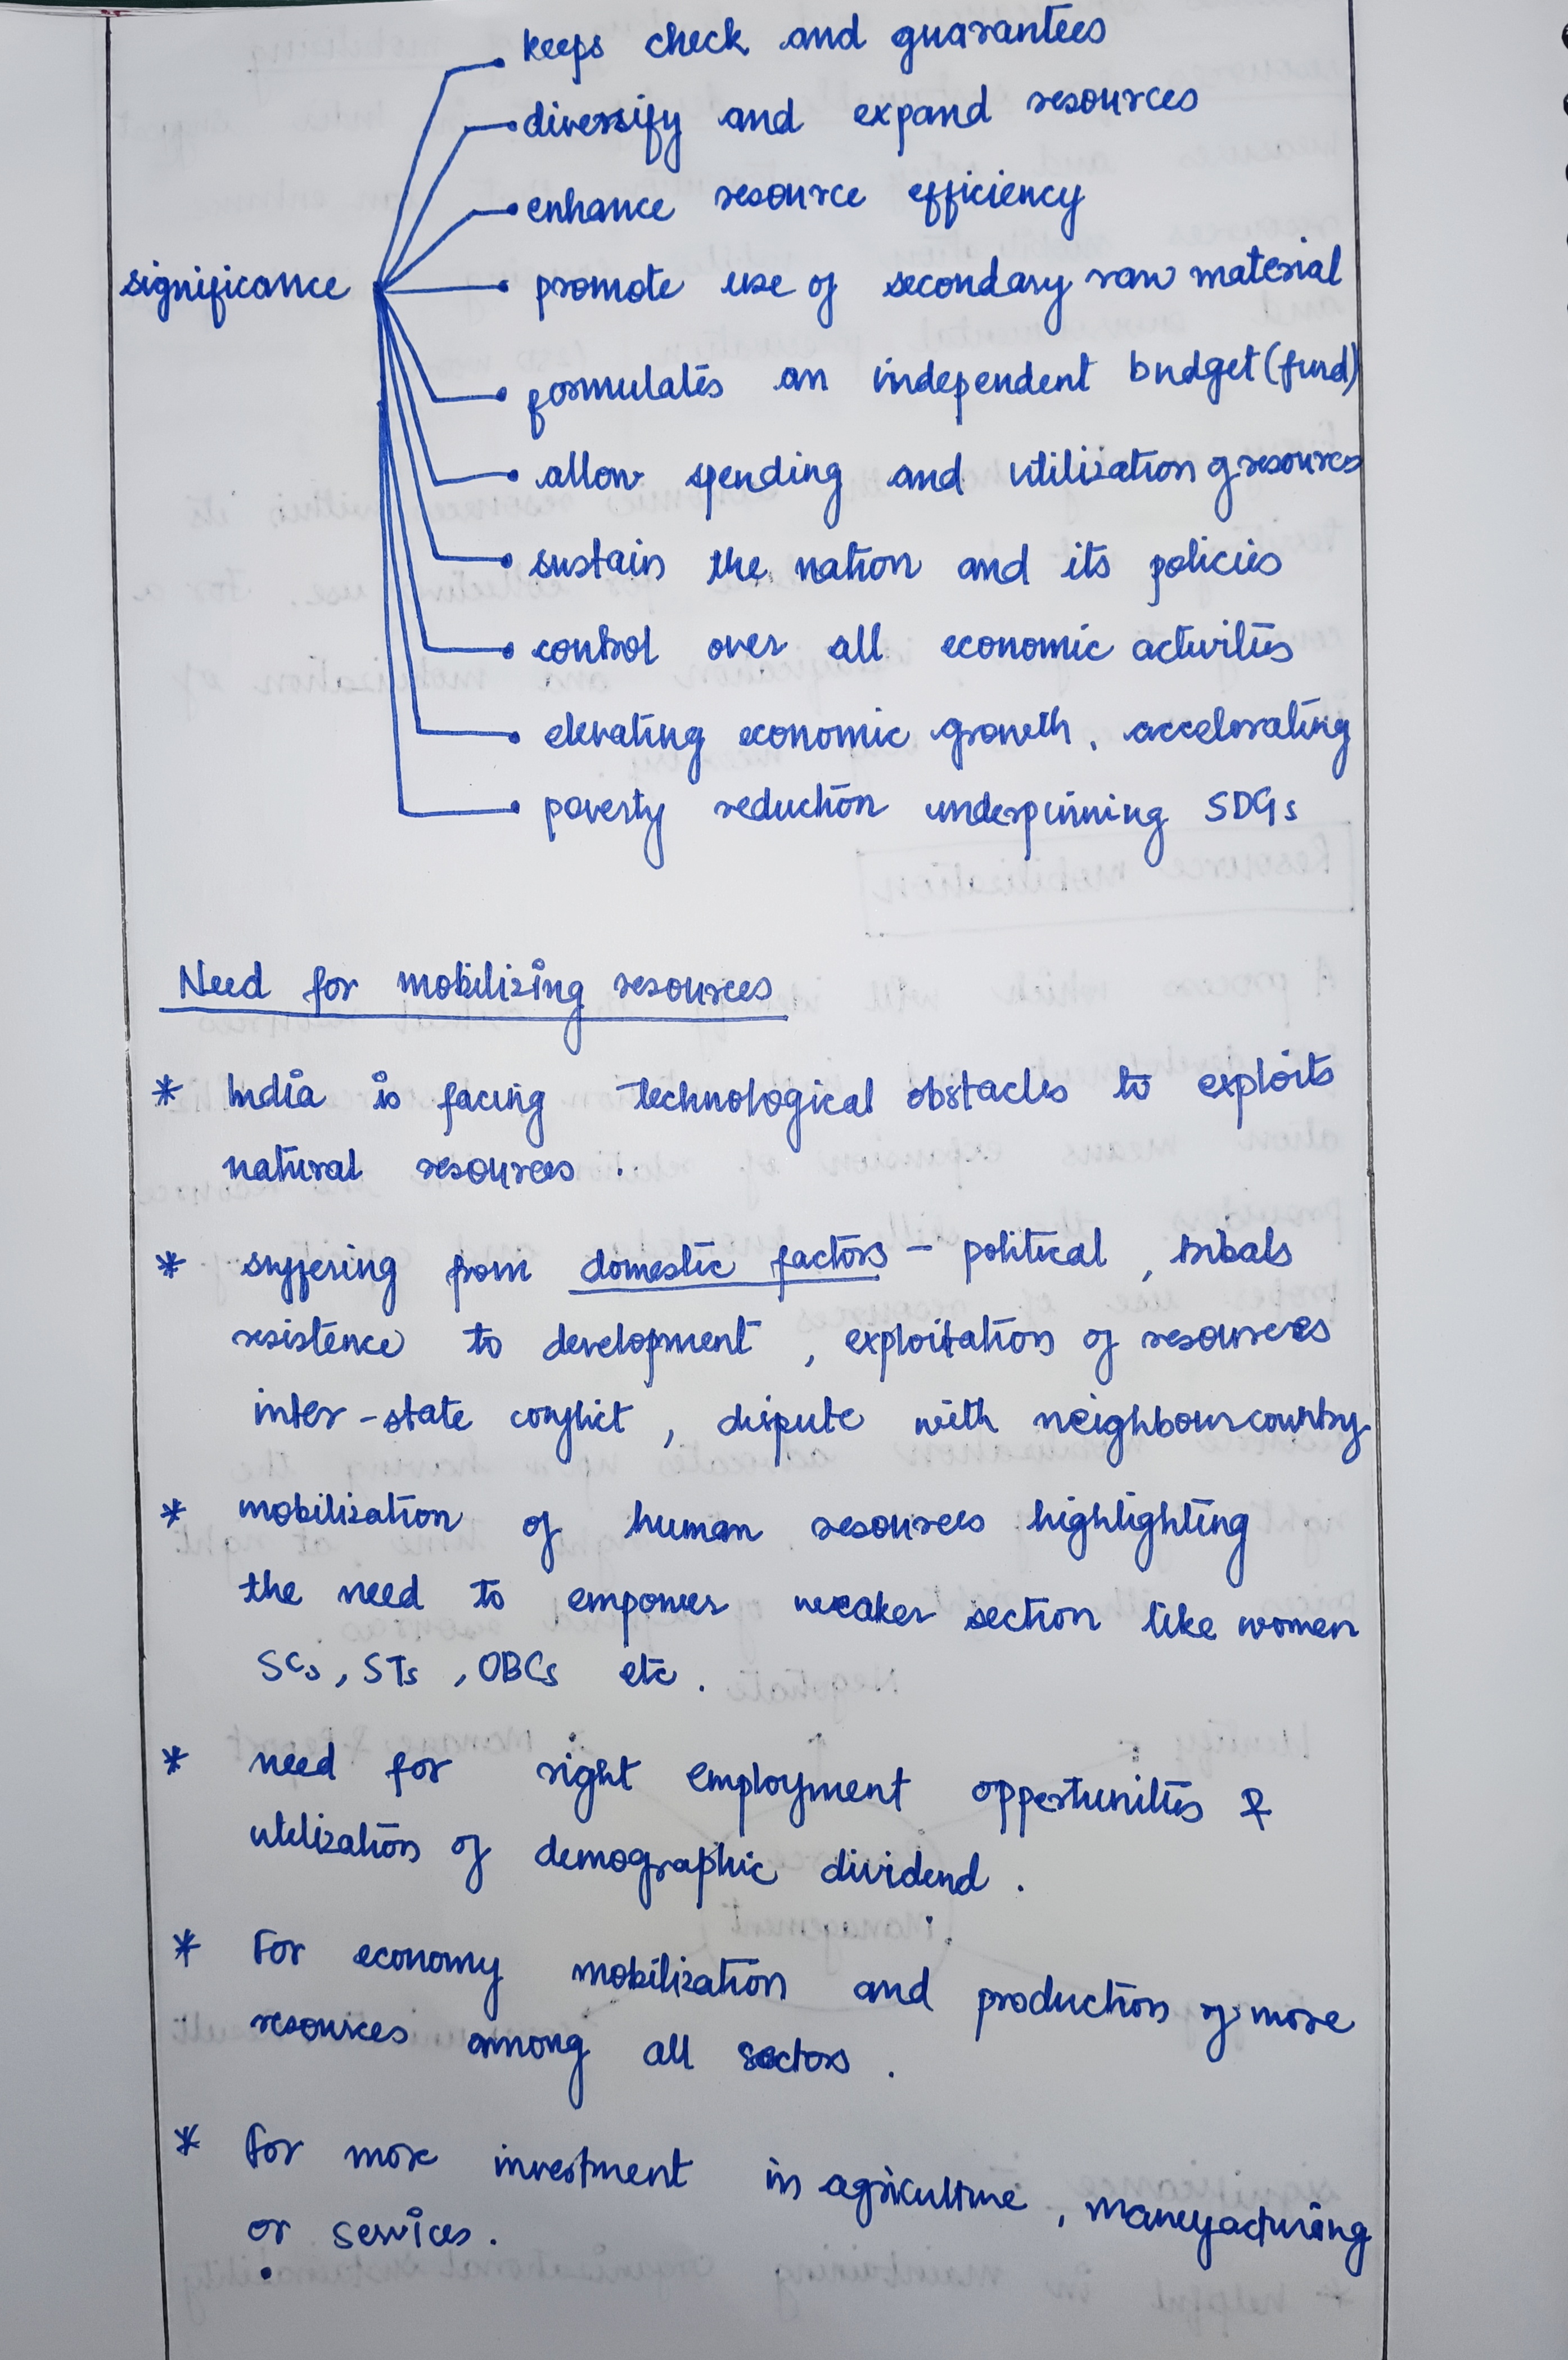 keeps check and guarantees
diversify and expand resources
enhance resource efficiency
significance
promote use of secondary raw material
formulates an independent budget (fund)
allow spending and utilization of resources
sustain the nation and its policies
control over all economic activities
elevating economic growth, accelerating
poverty reduction underpinning SDGs
Need for mobilizing resources
* India is facing technological obstacles to exploits
natural resources.
* suffering from domestic factors - political, tribals
resistence to development, exploitation of resources
inter-state conflict, dispute with neighbour country
* mobilization of human resources highlighting
the need to empower weaker section like women
SCs, STs, OBCs etc.
* need for right employment opportunities &
utilization of demographic dividend.
* For economy mobilization and production of more
resources among all sectors.
* For more investment in agriculture, manufacturing
or services.